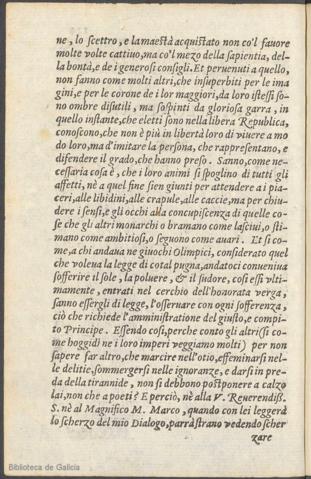 ne, lo scettro, e la maestà acquistato non co'l fauore
molte volte cattiuo, ma co'l mezo della sapientia, del-
la bontà, e de i generosi consigli. Et peruenuti a quello,
non fanno come molti altri, che insuperbiti per le ima
gini, e per le corone de i lor maggiori, da loro istessi so-
no ombre disutili, ma sospinti da gloriosa garra, in
quello instante, che eletti sono nella libera Republica,
conoscono, che non è più in libertà loro di viuere a mo
do loro, ma d'imitare la persona, che rappresentano, e
difendere il grado, che hanno preso. Sanno, come ne-
cessaria cosa è, che i loro animi si spoglino di tutti gli
affetti, nè a quel fine sien giunti per attendere a i pia-
ceri, alle libidini, alle crapule, alle caccie, ma per chiu-
dere i sensi, e gli occhi alla concupiscenza di quelle co-
se che gli altri monarchi o bramano come lasciui, o sti-
mano come ambitiosi, o seguono come auari. Et si co-
me, a chi andaua ne giuochi Olimpici, considerato quel
che voleua la legge di cotal pugna, andatoci conueniua
sofferire il sole, la poluere, & il sudore, così essi vlti-
mamente, entrati nel cerchio dell'honorata verga,
sanno essergli di legge, l'osseruare con ogni sofferenza,
ciò che richiede l'amministratione del giusto, e compi-
to Principe. Essendo così, perche conto gli altri (si co-
me hoggidì ne i loro imperi veggiamo molti) per non
sapere far altro, che marcire nell'otio, effeminarsi nel-
le delitie, sommergersi nelle ignoranze, e darsi in pre-
da della tirannide, non si debbono postponere a calzo
lai, non che a poeti? E perciò, nè alla V. Reuerendiss.
S. nè al Magnifico M. Marco, quando con lei leggerà
lo scherzo del mio Dialogo, parrà strano vedendo scher
zare
Biblioteca de Galicia